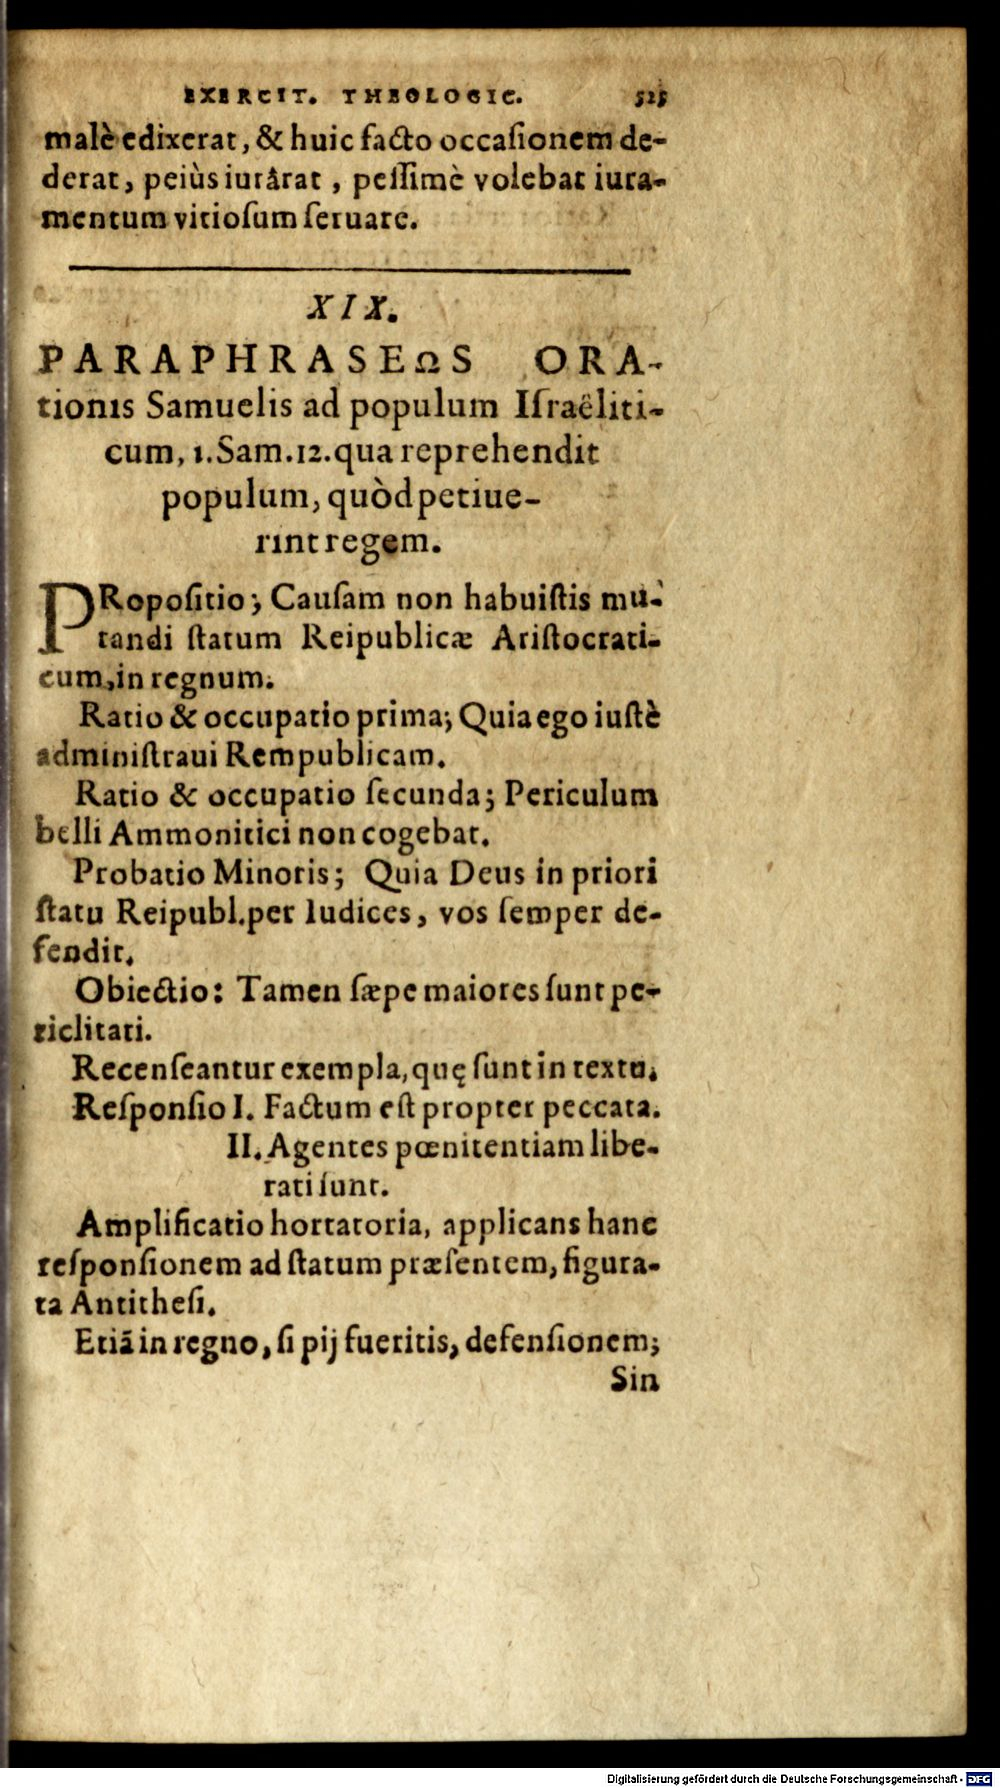 EXERCIT. THEOLOGIC. 525
malè edixerat, & huic facto occaſionem de-
derat, peiùs iurârat, peſſimè volebat iura-
mentum vitioſum ſeruare.
XIX.
PARAPHRASEΩS ORA-
tionis Samuelis ad populum Iſraëliti-
cum, 1. Sam. 12. qua reprehendit
populum, quòd petiue-
rint regem.
PRopoſitio; Cauſam non habuiſtis mu-
tandi ſtatum Reipublicæ Ariſtocrati-
cum, in regnum.
Ratio & occupatio prima; Quia ego iuſtè
adminiſtraui Rempublicam.
Ratio & occupatio ſecunda; Periculum
belli Ammonitici non cogebat.
Probatio Minoris; Quia Deus in priori
ſtatu Reipubl. per Iudices, vos ſemper de-
fendit.
Obiectio: Tamen ſæpe maiores ſunt pe-
riclitati.
Recenſeantur exempla, quę ſunt in textu.
Reſponſio I. Factum eſt propter peccata.
II. Agentes pœnitentiam libe-
rati ſunt.
Amplificatio hortatoria, applicans hanc
reſponſionem ad ſtatum præſentem, figura-
ta Antitheſi.
Etiā in regno, ſi pij fueritis, defenſionem;
Sin
Digitalisierung gefördert durch die Deutsche Forschungsgemeinschaft - DFG